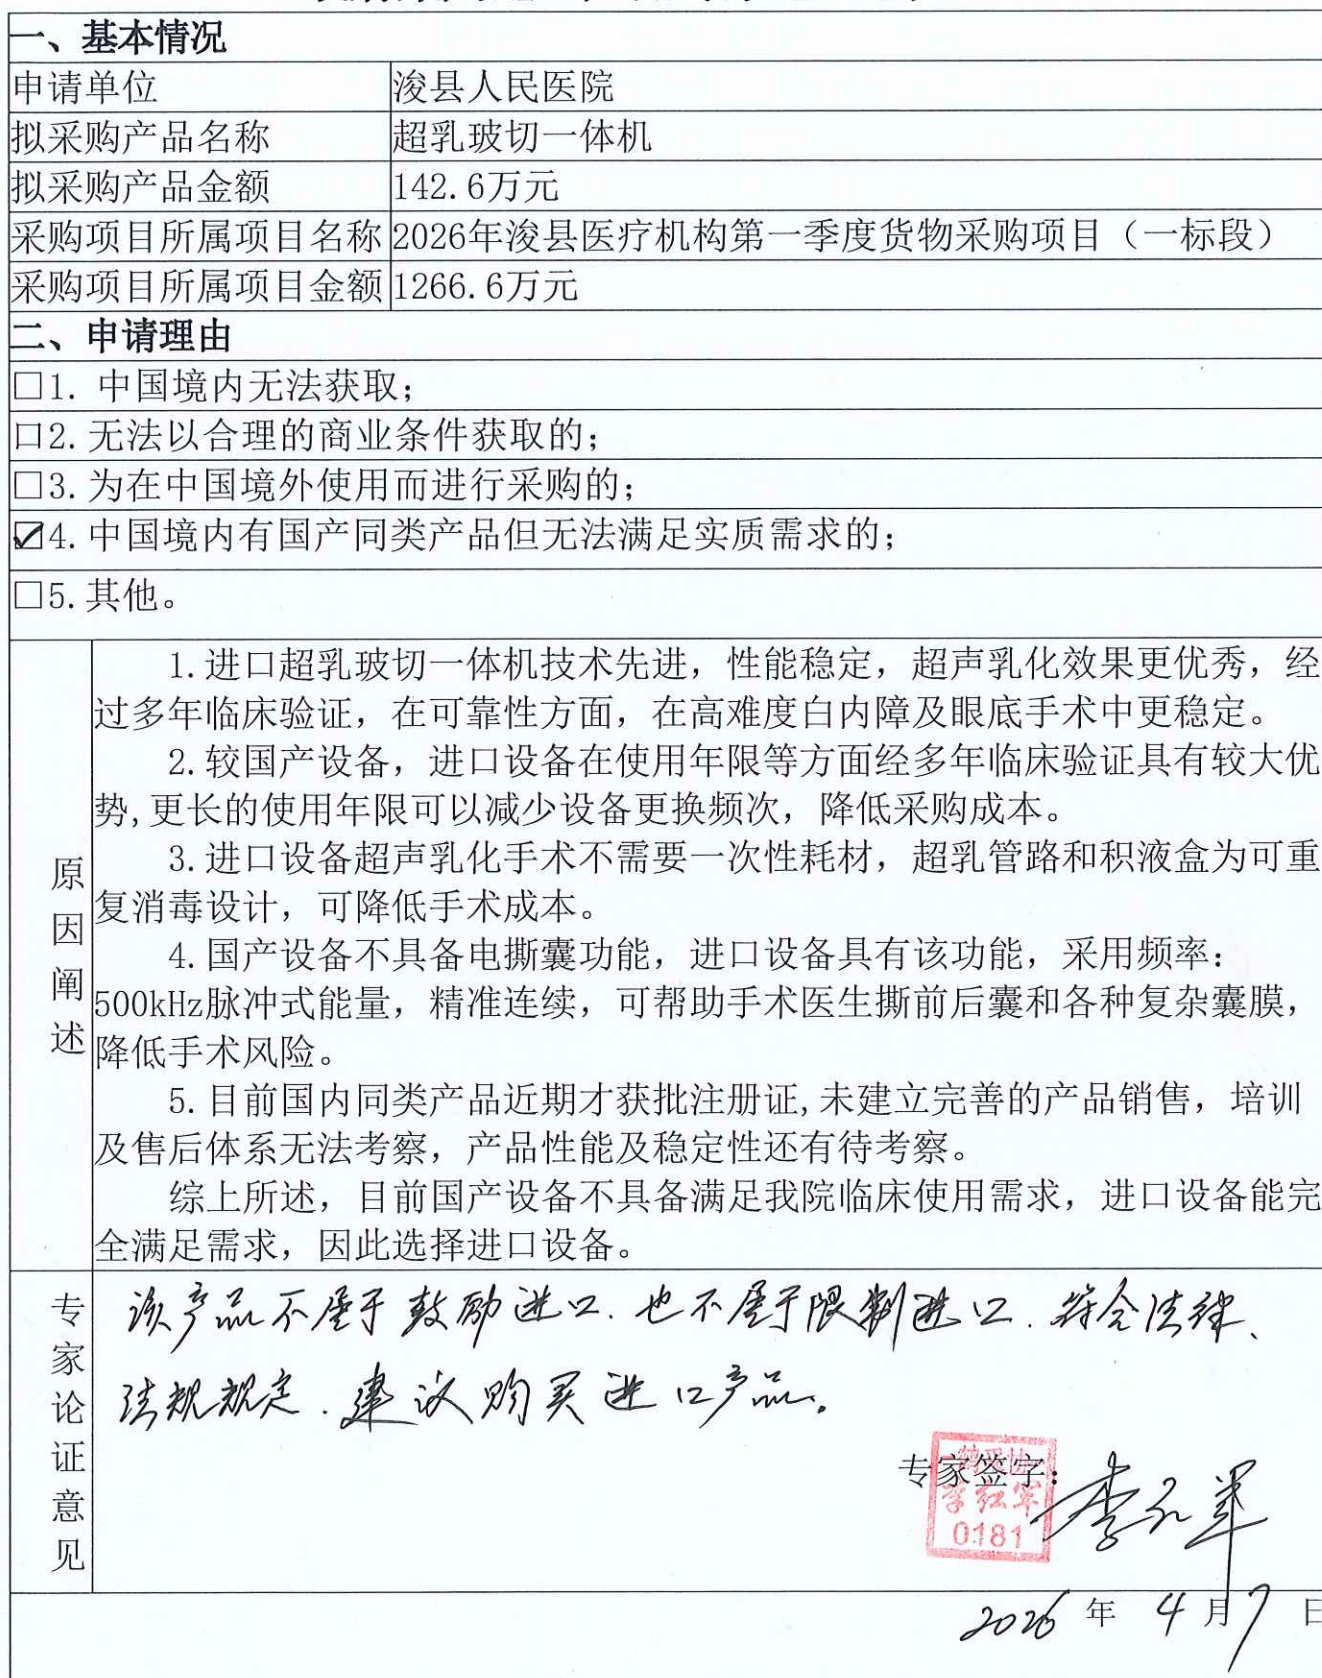 一、基本情况
申请单位 浚县人民医院
拟采购产品名称 超乳玻切一体机
拟采购产品金额 142.6万元
采购项目所属项目名称 2026年浚县医疗机构第一季度货物采购项目（一标段）
采购项目所属项目金额 1266.6万元
二、申请理由
□1. 中国境内无法获取；
口2.无法以合理的商业条件获取的；
□3.为在中国境外使用而进行采购的；
☑4.中国境内有国产同类产品但无法满足实质需求的；
□5.其他。
原因阐述
1.进口超乳玻切一体机技术先进，性能稳定，超声乳化效果更优秀，经
过多年临床验证，在可靠性方面，在高难度白内障及眼底手术中更稳定。
2.较国产设备，进口设备在使用年限等方面经多年临床验证具有较大优
势,更长的使用年限可以减少设备更换频次，降低采购成本。
3.进口设备超声乳化手术不需要一次性耗材，超乳管路和积液盒为可重
复消毒设计，可降低手术成本。
4.国产设备不具备电撕囊功能，进口设备具有该功能，采用频率：
500kHz脉冲式能量，精准连续，可帮助手术医生撕前后囊和各种复杂囊膜，
降低手术风险。
5.目前国内同类产品近期才获批注册证,未建立完善的产品销售，培训
及售后体系无法考察，产品性能及稳定性还有待考察。
综上所述，目前国产设备不具备满足我院临床使用需求，进口设备能完
全满足需求，因此选择进口设备。
专家论证意见
该产品不属于鼓励进口.也不属于限制进口.符合法律、
法规规定.建议购买进口产品。
专家签字：
鹤采协
李红军
0181
李红军
2026 年 4 月 7 日